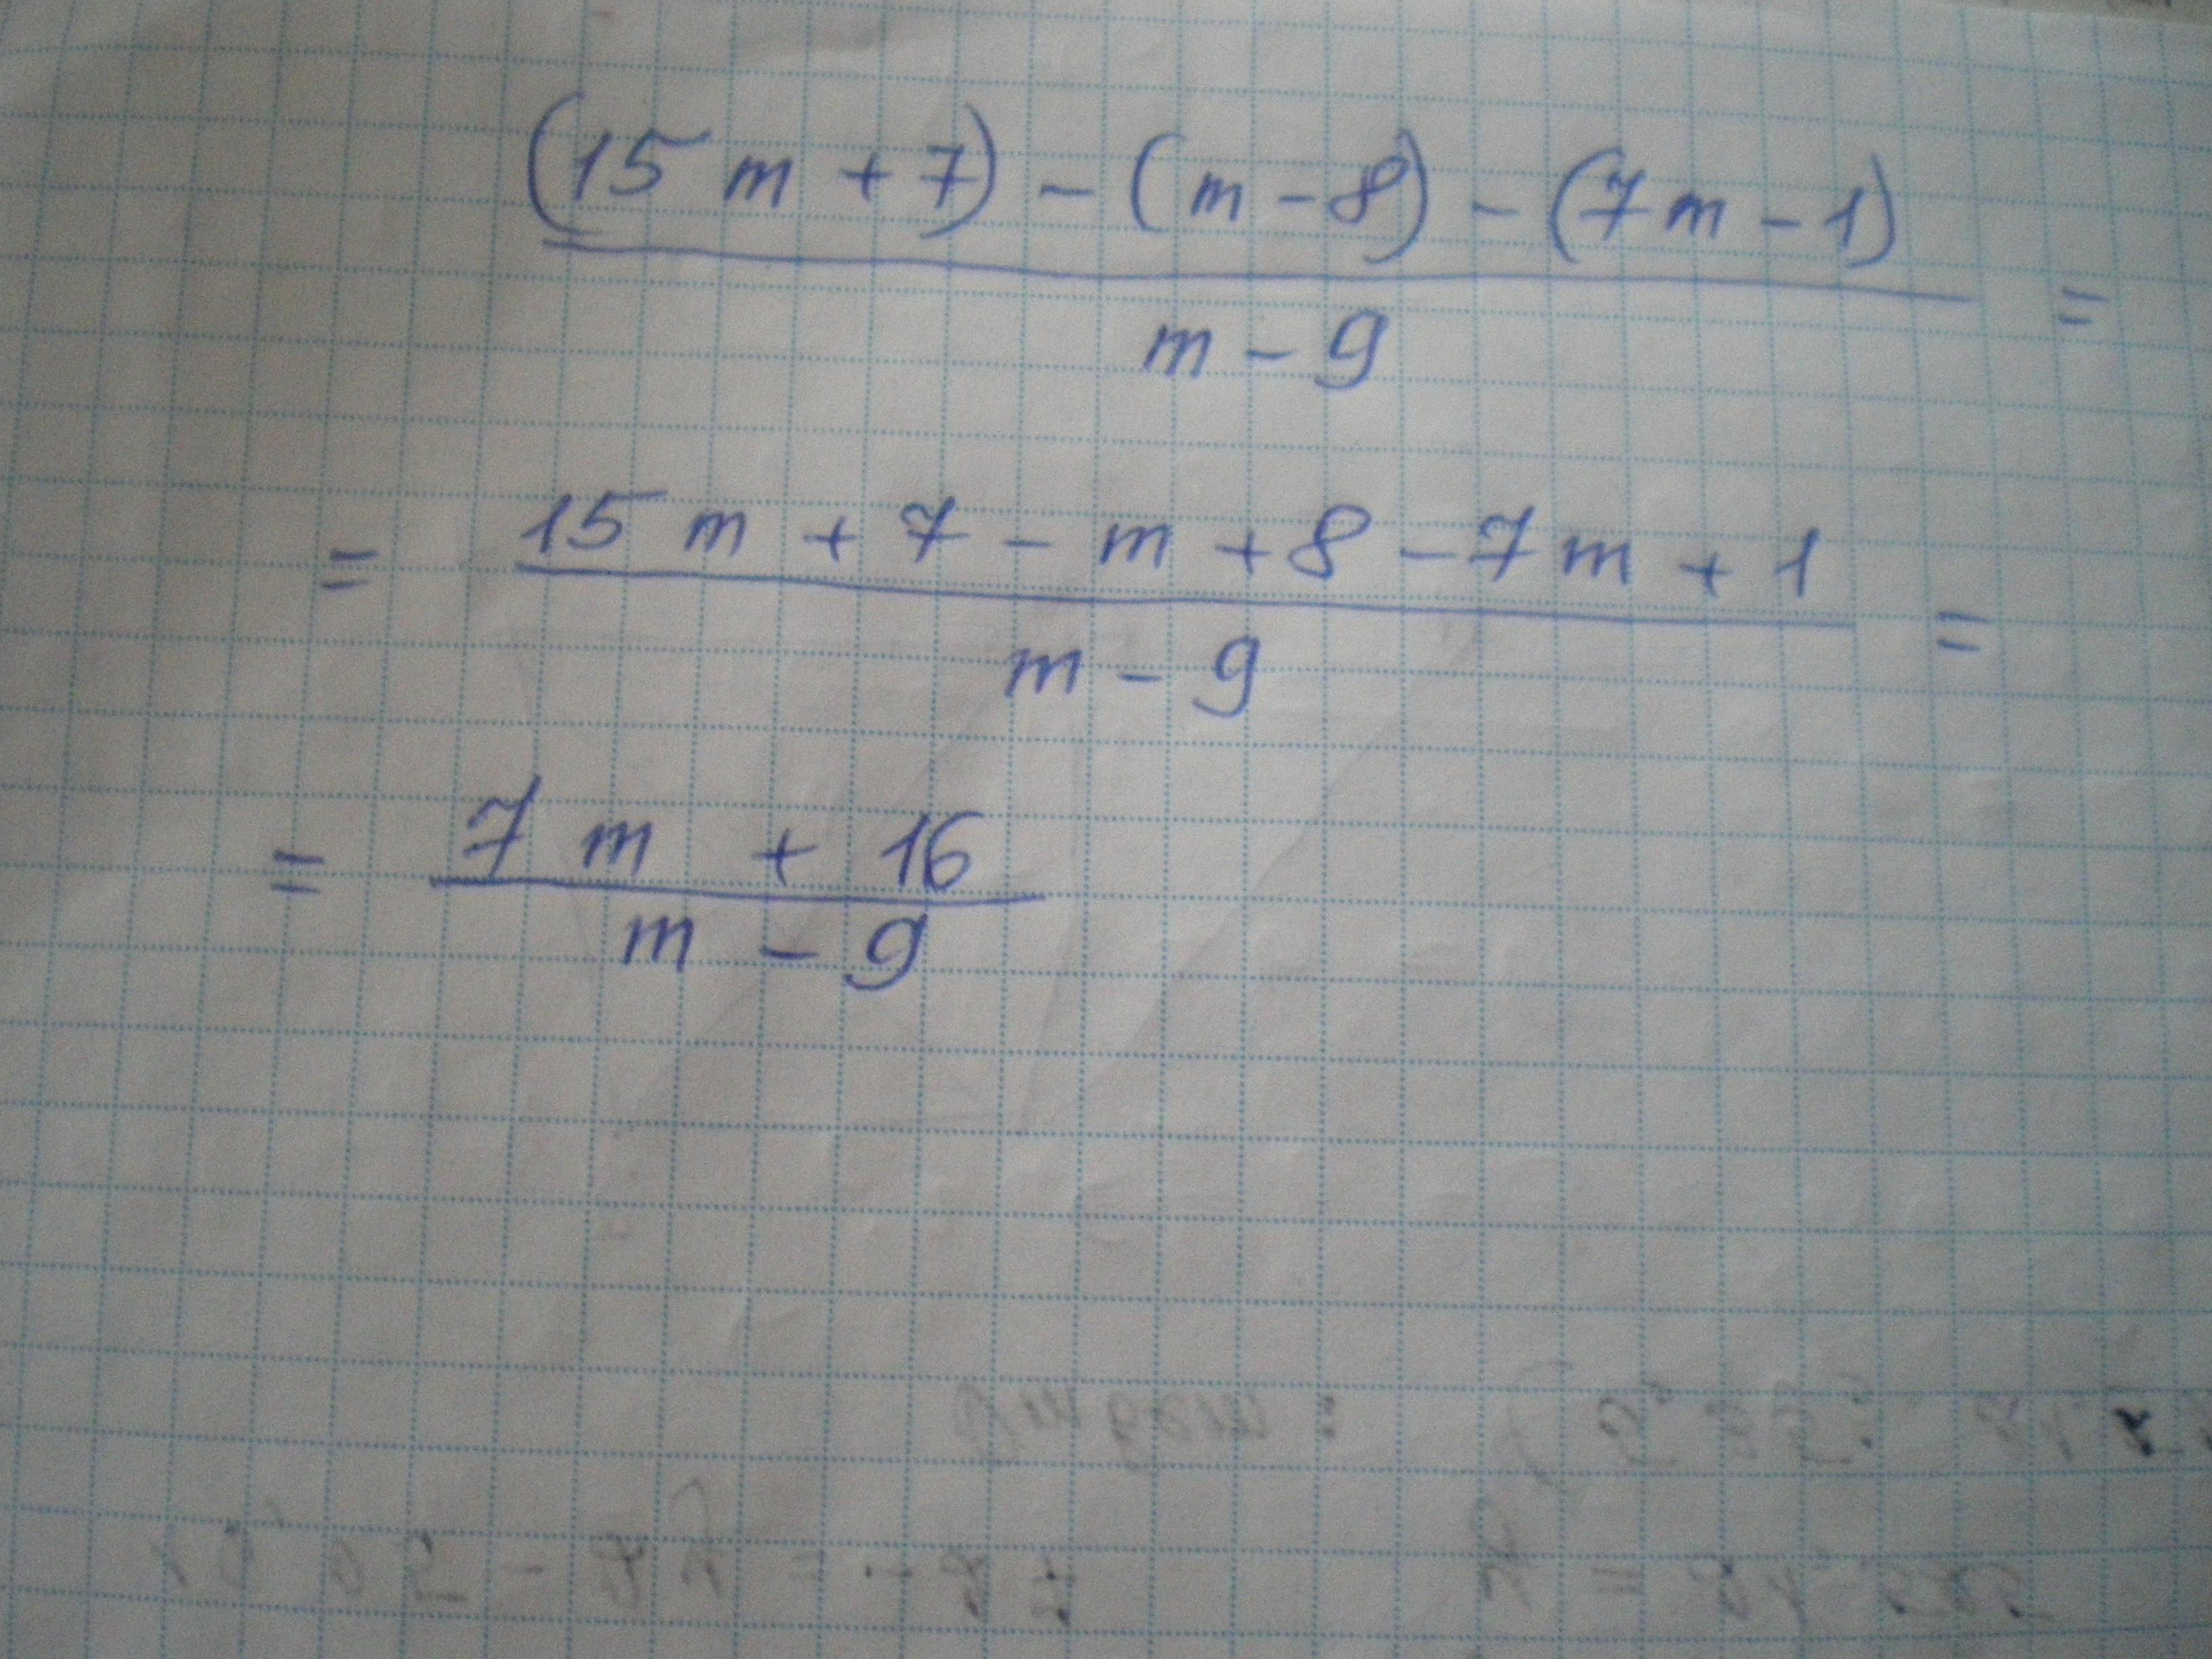 (15 m + 7) - (m - 8) - (7 m - 1)
m - 9 =
= 15 m + 7 - m + 8 - 7 m + 1
m - 9 =
= 7 m + 16
m - 9